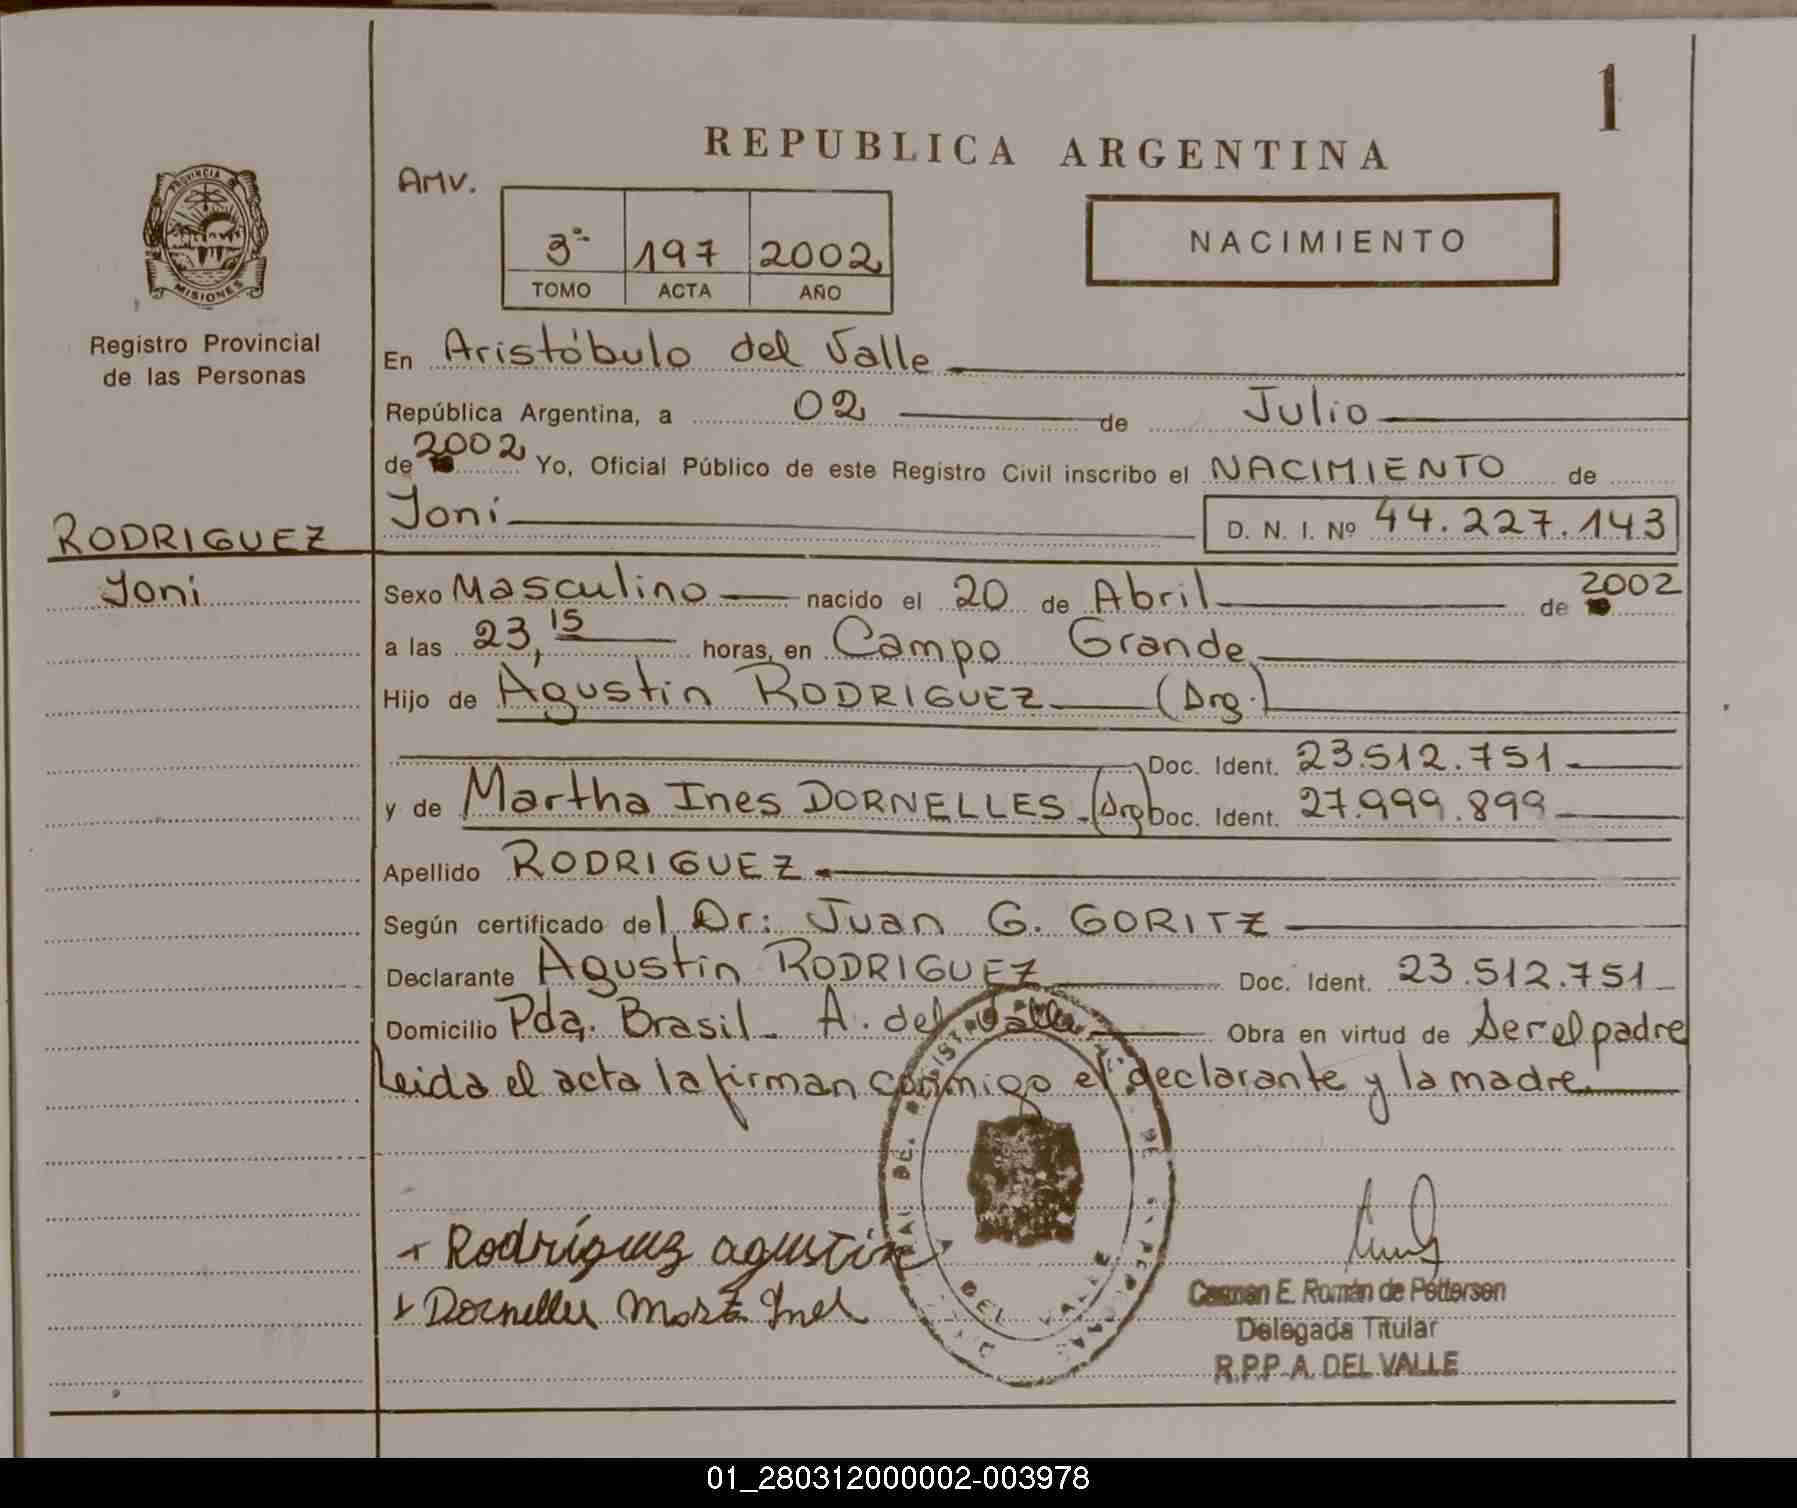 1
REPUBLICA ARGENTINA
AMV.
3º 197 2002
TOMO ACTA AÑO
NACIMIENTO
PROVINCIA DE
MISIONES
Registro Provincial
de las Personas
En Aristóbulo del Valle
República Argentina, a 02 de Julio
de 2002 Yo, Oficial Público de este Registro Civil inscribo el NACIMIENTO de
Yoni D. N. I. Nº 44.227.143
RODRIGUEZ
Yoni
Sexo Masculino nacido el 20 de Abril de 2002
a las 23,15 horas, en Campo Grande
Hijo de Agustin RODRIGUEZ (Arg.)
Doc. Ident. 23.512.751
y de Martha Ines DORNELLES (Arg) Doc. Ident. 27.999.899
Apellido RODRIGUEZ
Según certificado del Dr: Juan G. GORITZ
Declarante Agustin RODRIGUEZ Doc. Ident. 23.512.751
Domicilio Pda. Brasil - A. del Valle Obra en virtud de Ser el padre
Leida el acta la firman conmigo el declarante y la madre.
Rodríguez agustin
Dornelles Inel
DEL VALLE
Carmen E. Román de Pettersen
Delegada Titular
R.P.P-A. DEL VALLE
01_280312000002-003978